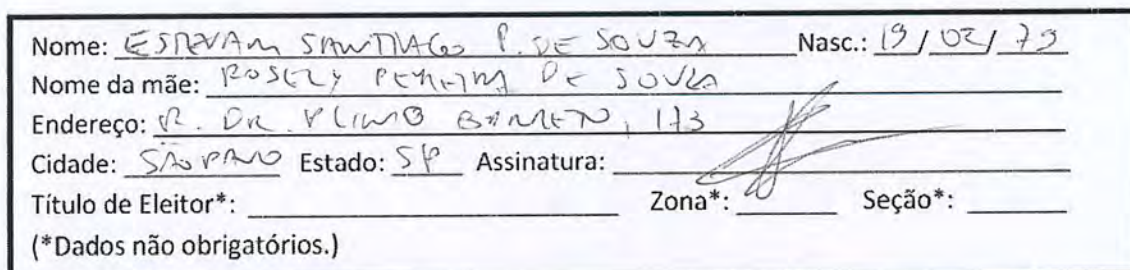 Nome: ESTEVAM SANTIAGO P. DE SOUZA Nasc.: 19/02/79
Nome da mãe: ROSELY PEREIRA DE SOUZA
Endereço: R. DR. PLINIO BARRETO, 173
Cidade: SÃO PAULO Estado: SP Assinatura:
Título de Eleitor*: Zona*: Seção*:
(*Dados não obrigatórios.)